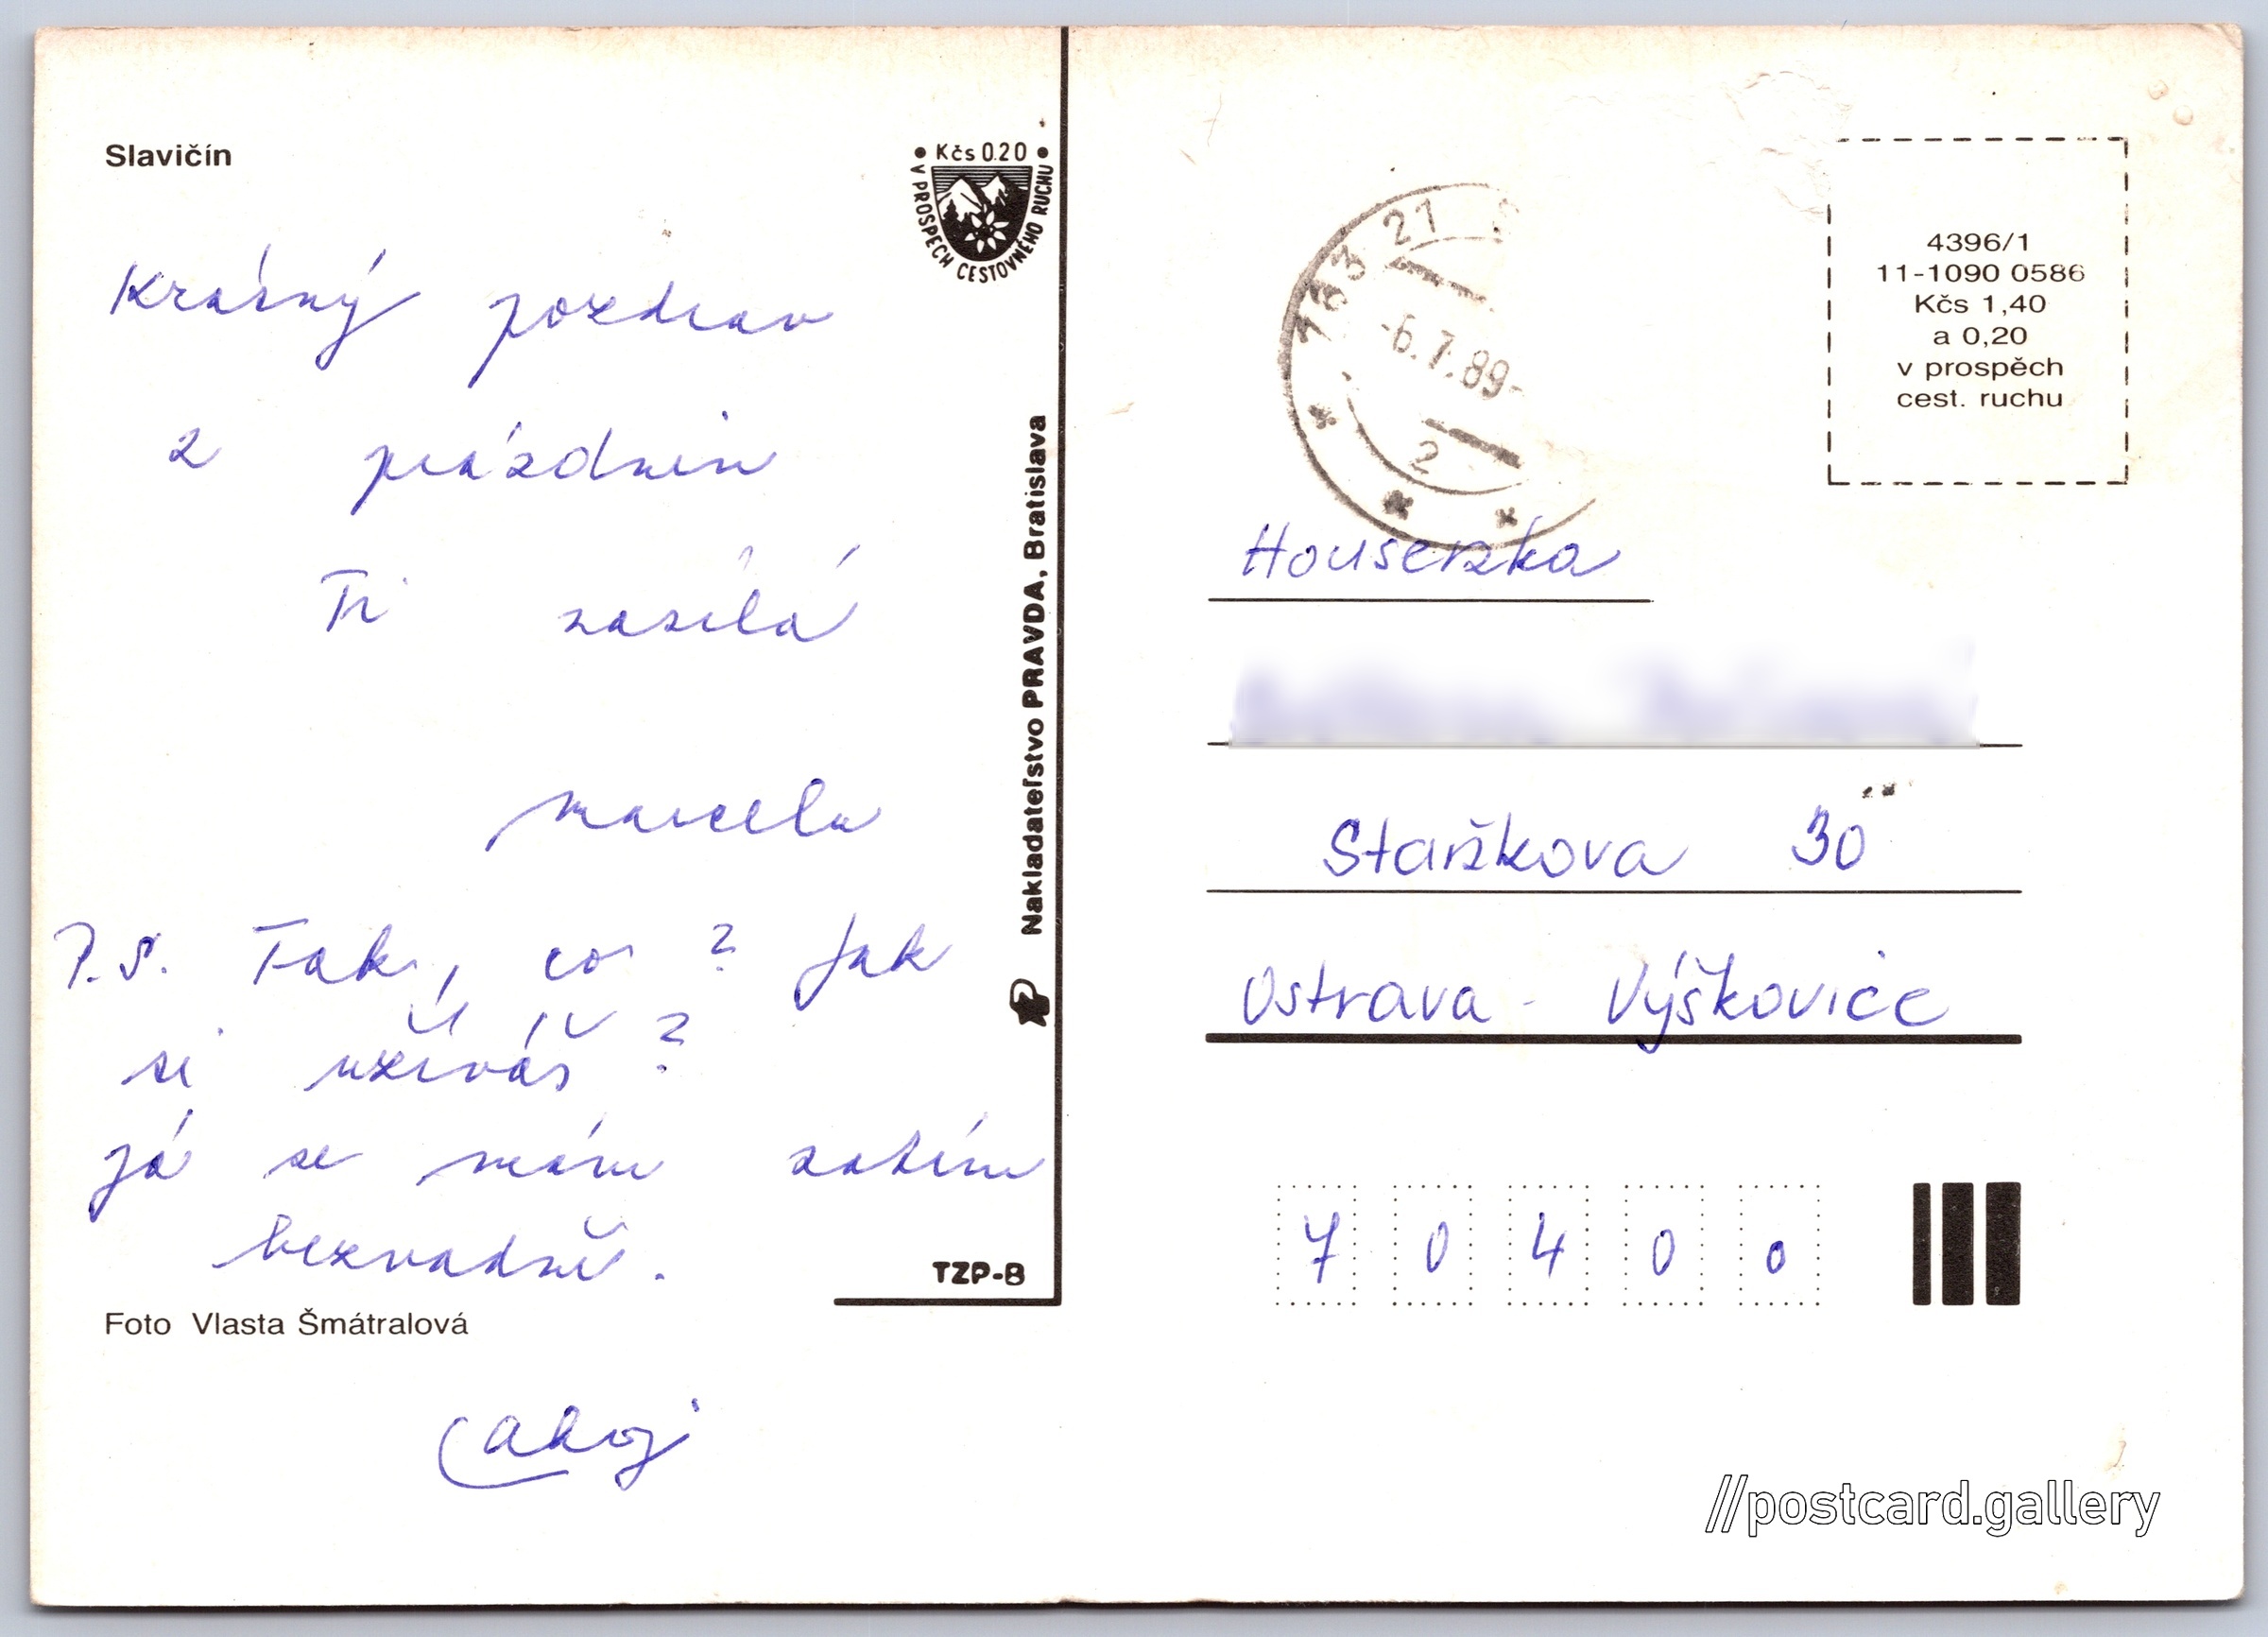 Slavičín
Kčs 0.20
V PROSPECH CESTOVNÉHO RUCHU
Krásný pozdrav
z prázdnin
Ti zasílá
Marcela
P.S. Tak, co? Jak
si užíváš?
Já se mám zatím
bezvadně.
Foto Vlasta Šmátralová
Ahoj
Nakladateľstvo PRAVDA, Bratislava
TZP-B
763 21
-6.7.89-
2
4396/1
11-1090 0586
Kčs 1,40
a 0,20
v prospěch
cest. ruchu
Houserka
Staržkova 30
Ostrava - Výškovice
7 0 4 0 0
//postcard.gallery